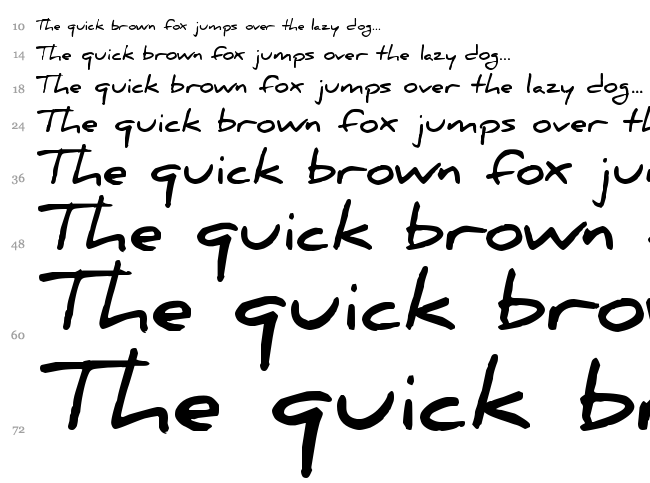 10 The quick brown fox jumps over the lazy dog...
14 The quick brown fox jumps over the lazy dog...
18 The quick brown fox jumps over the lazy dog...
24 The quick brown fox jumps over th
36 The quick brown fox ju
48 The quick brown
60 The quick bro
72 The quick br